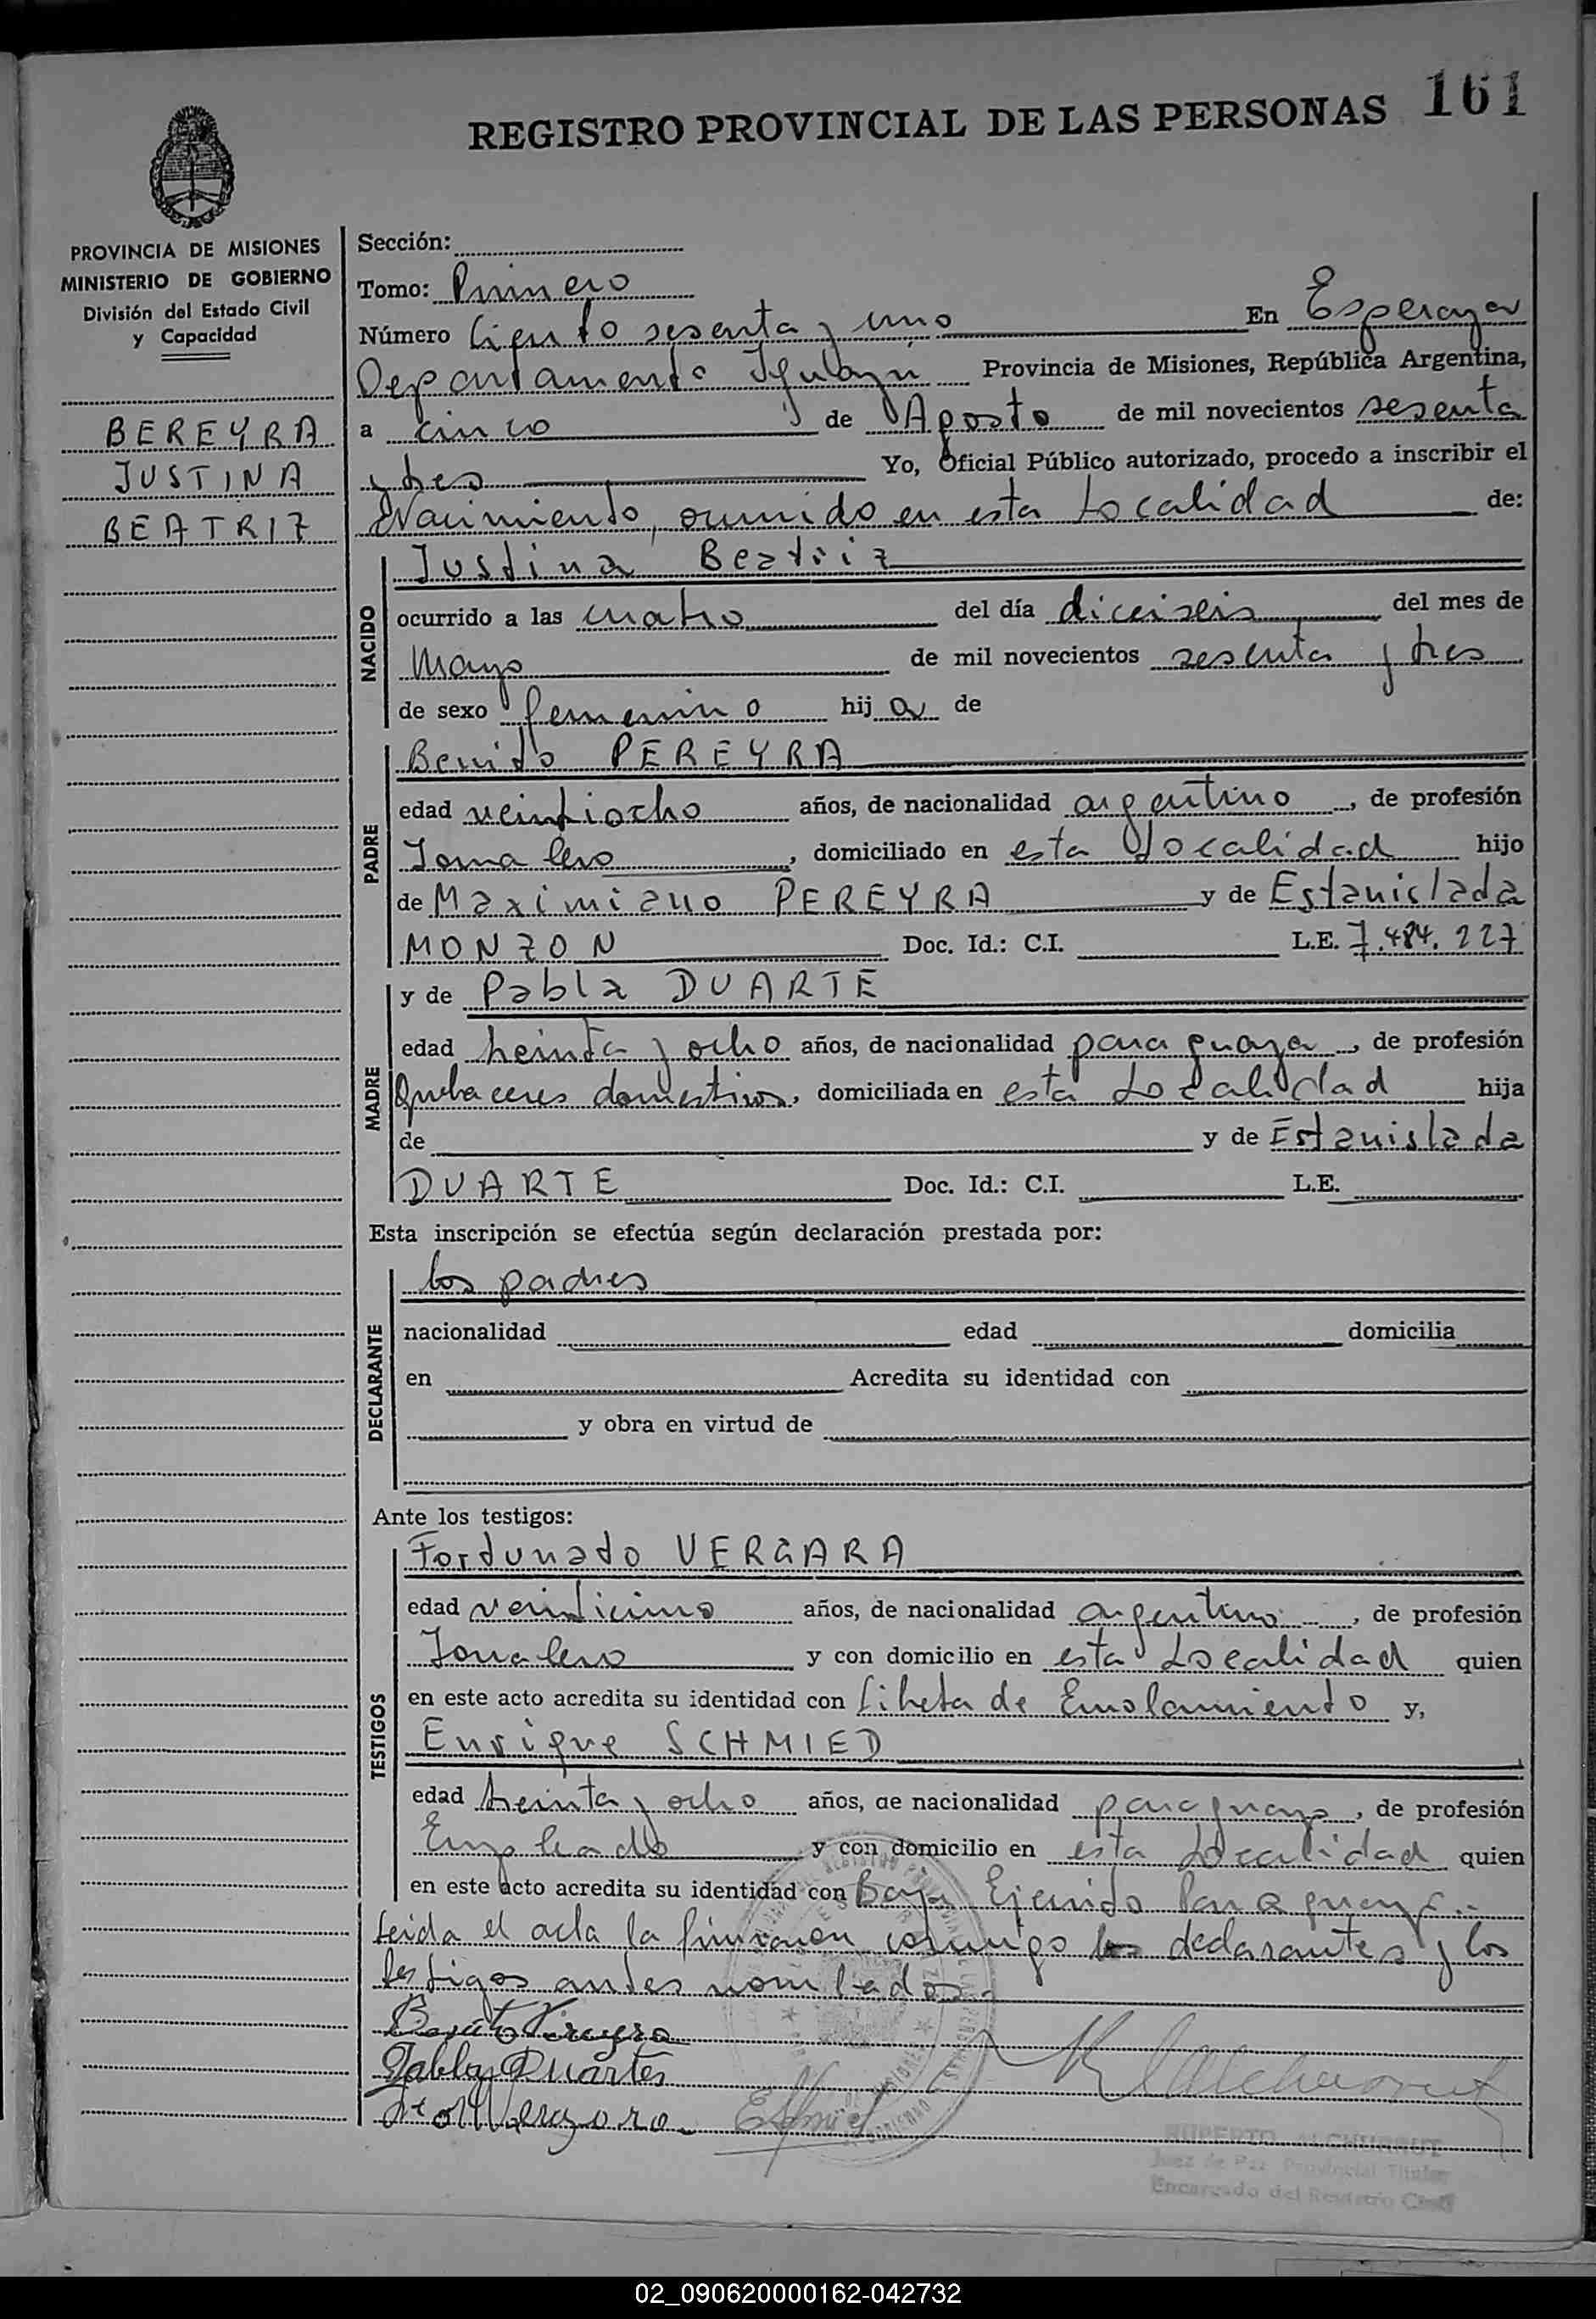 REGISTRO PROVINCIAL DE LAS PERSONAS 161
PROVINCIA DE MISIONES
MINISTERIO DE GOBIERNO
División del Estado Civil
y Capacidad
BEREYRA
JUSTINA
BEATRIZ
Sección:
Tomo: Primero
Número Ciento sesenta y uno En Esperanza
Departamento Iguazú Provincia de Misiones, República Argentina,
a cinco de Agosto de mil novecientos sesenta
y tres Yo, Oficial Público autorizado, procedo a inscribir el
Nacimiento, ocurrido en esta Localidad de:
NACIDO
Justina Beatriz
ocurrido a las cuatro del día dieciseis del mes de
Mayo de mil novecientos sesenta y tres
de sexo femenino hij a de
PADRE
Benito PEREYRA
edad veintiocho años, de nacionalidad argentino, de profesión
Jornalero, domiciliado en esta Localidad hijo
de Maximiano PEREYRA y de Estanislada
MONZON Doc. Id.: C.I. L.E. 7.484.227
MADRE
y de Pabla DUARTE
edad treinta y ocho años, de nacionalidad paraguaya, de profesión
Quehaceres domesticos, domiciliada en esta Localidad hija
de y de Estanislada
DUARTE Doc. Id.: C.I. L.E.
Esta inscripción se efectúa según declaración prestada por:
DECLARANTE
los padres
nacionalidad edad domicilia
en Acredita su identidad con
y obra en virtud de
Ante los testigos:
TESTIGOS
Fortunato VERGARA
edad veinticinco años, de nacionalidad argentino, de profesión
Jornalero y con domicilio en esta Localidad quien
en este acto acredita su identidad con Libreta de Enrolamiento y,
Enrique SCHMIED
edad treinta y ocho años, de nacionalidad paraguayo, de profesión
Empleado y con domicilio en esta Localidad quien
en este acto acredita su identidad con Baja Ejercito Paraguayo
Leida el acta la firmaron conmigo los declarantes y los
testigos antes nombrados.
Benito Pereyra
Pabla Duartes
RUPERTO ALCHURRUT
Juez de Paz Provincial Titular
Encargado del Registro Civil
02_090620000162-042732